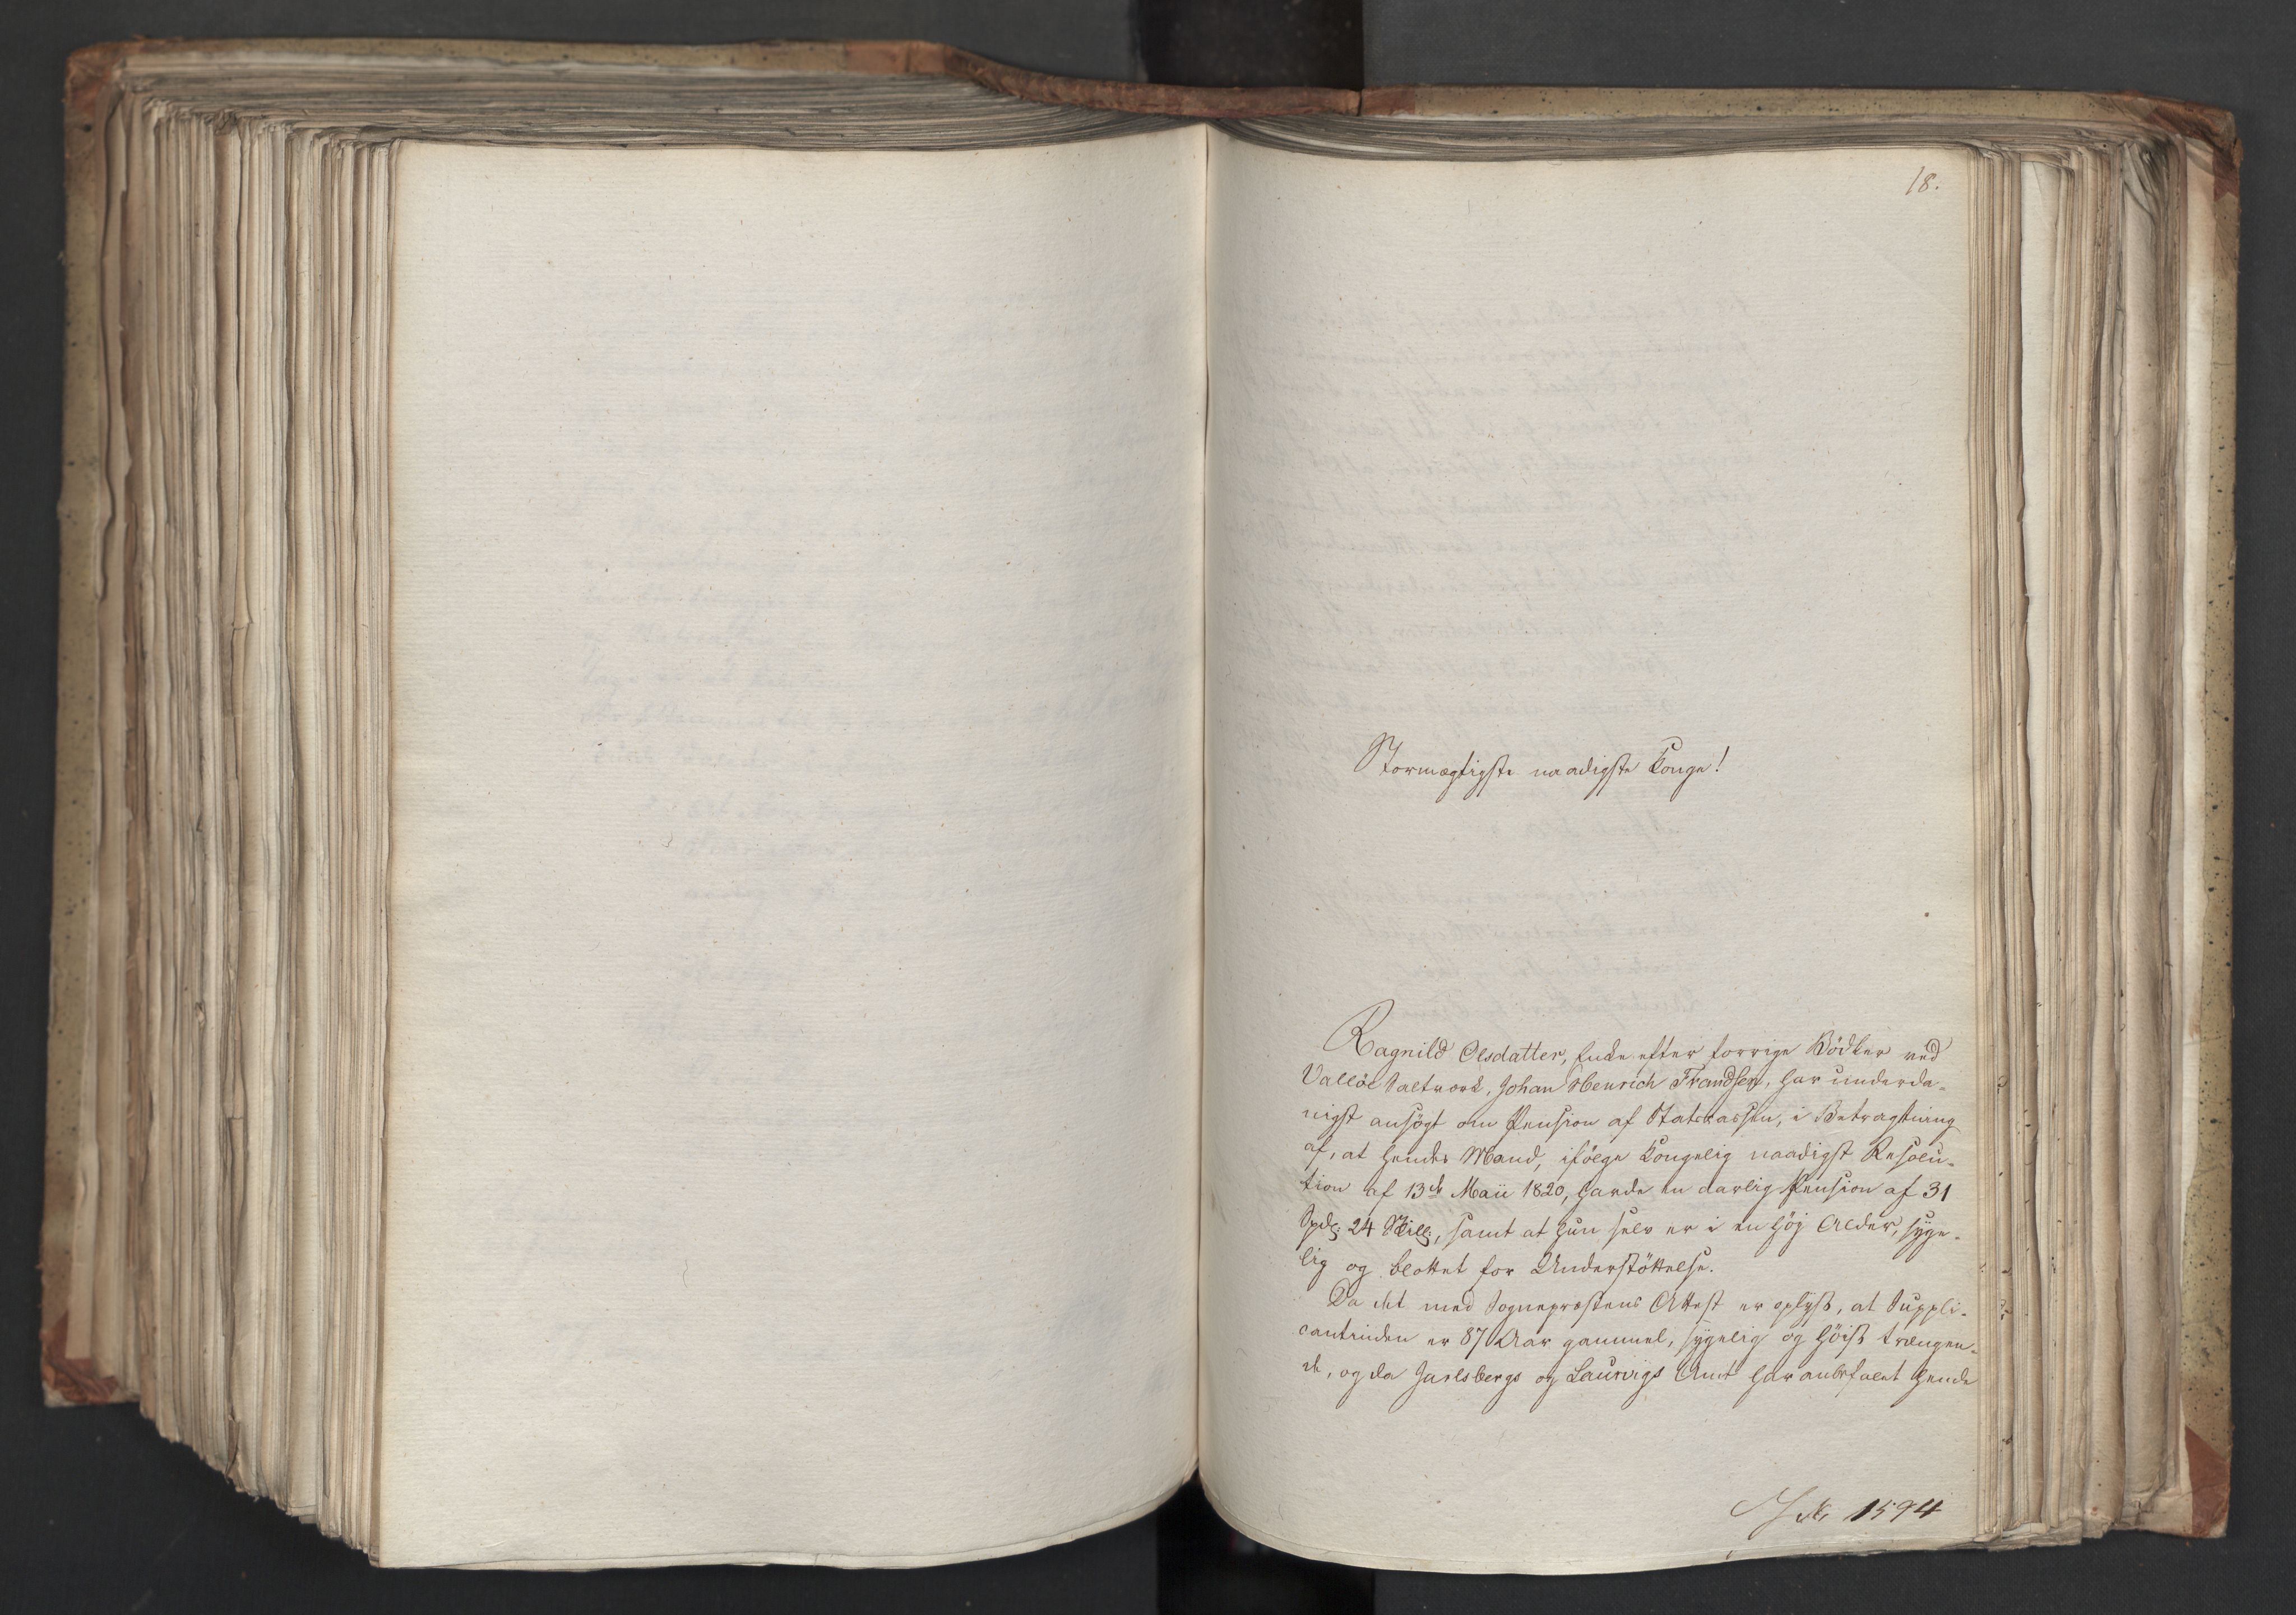 18.
Stormægtigste naadigste Konge!
Ragnild Olsdatter, Enke efter forrige Bödker ved
Vallöe Saltværk, Johan Henrich Frandsen, har underda-
nigst ansögt om Pension af Statscassen, i Betragtning
af, at hendes Mand, ifölge Kongelig naadigst Resolu-
tion af 13de Maii 1820, havde en aarlig Pension af 31
Spd: 24 Skill:, samt at hun selv er i en höj Alder, syge-
lig og blottet for Understöttelse.
Da det med Sognepræstens Attest er oplyst, at Suppli-
cantinden er 87 Aar gammel, sygelig og höist trængen-
de, og da Jarlsbergs og Laurvigs Amt har anbefalet hende
1594